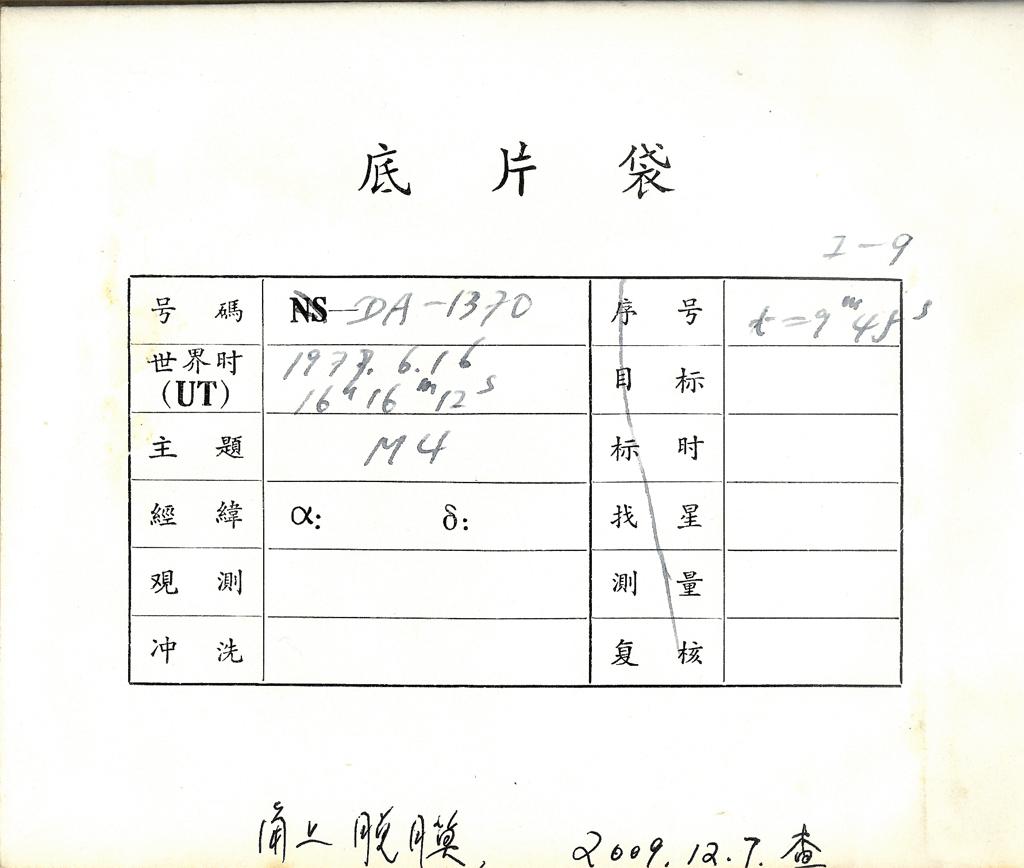 底片袋
I-9
号碼 NS-DA-1370 序号 t=9m48s
世界时(UT) 1977.6.16 目标
16h16m12s
主題 M4 标时
經緯 α: δ: 找星
观測 測量
冲洗 复核
角上脱膜, 2009.12.7.查